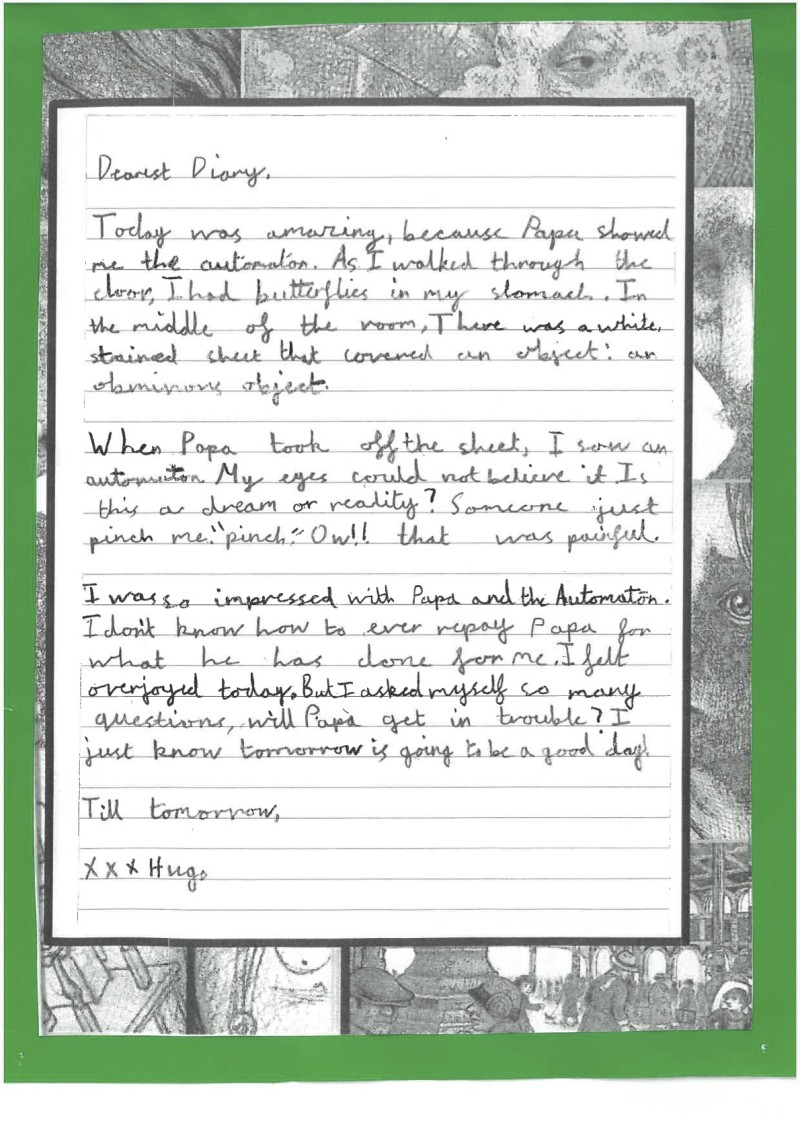 Dearest Diary,
Today was amazing, because Papa showed
me the automaton. As I walked through the
door, I had butterflies in my stomach. In
the middle of the room, There was a white,
stained sheet that covered an object: an
obminous object.
When Papa took off the sheet, I saw an
automaton. My eyes could not believe it Is
this a dream or reality? Someone just
pinch me. "pinch." Ow!! that was painful.
I was so impressed with Papa and the Automaton.
I don't know how to ever repay Papa for
what he has done for me. I felt
overjoyed today. But I asked myself so many
questions, will Papa get in trouble? I
just know tomorrow is going to be a good day!
Till tomorrow,
X x x Hugo